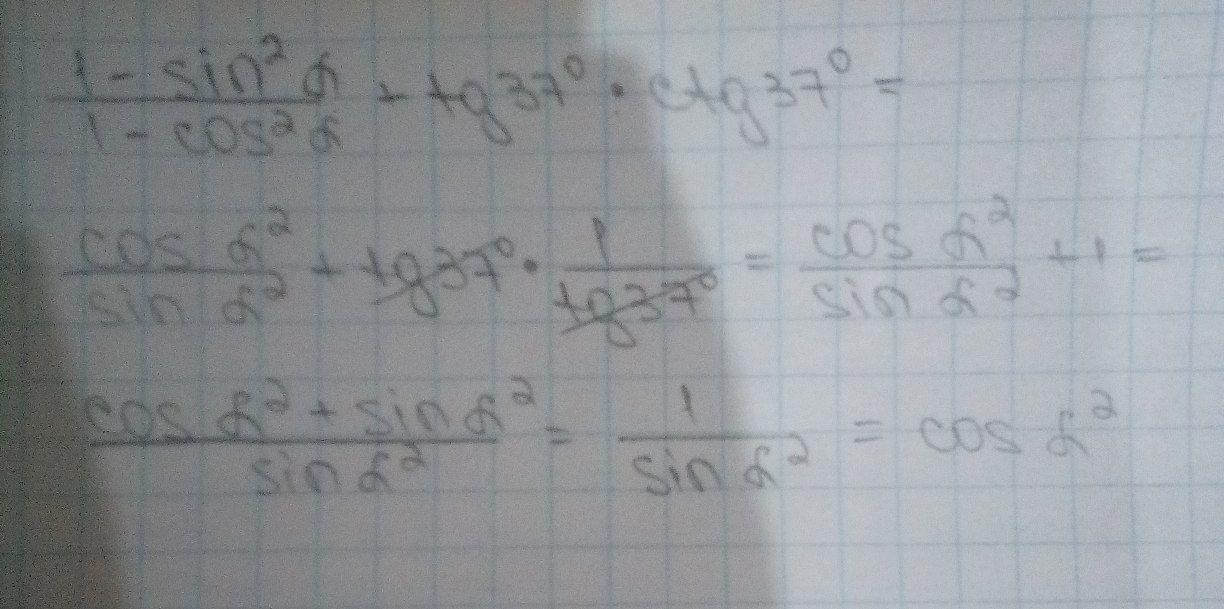 (1 - sin² α)/(1 - cos² α) + tg 37° · ctg 37° =
(cos α²)/(sin α²) + tg 37° · 1/(tg 37°) = (cos α²)/(sin α²) + 1 =
(cos α² + sin α²)/(sin α²) = 1/(sin α²) = cos α²